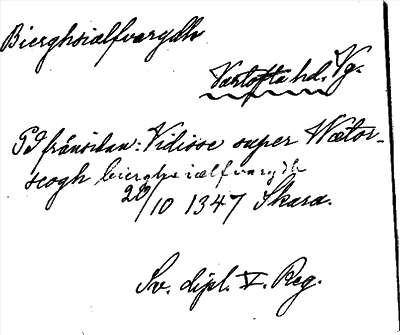 Bierghsiælfvarydh
Vartofta hd. Vg.
På frånsidan: Vilisse super Wætor-
scogh bierghsiælfvarydh
20/10 1347 Skara.
Sv. dipl. V. Reg.